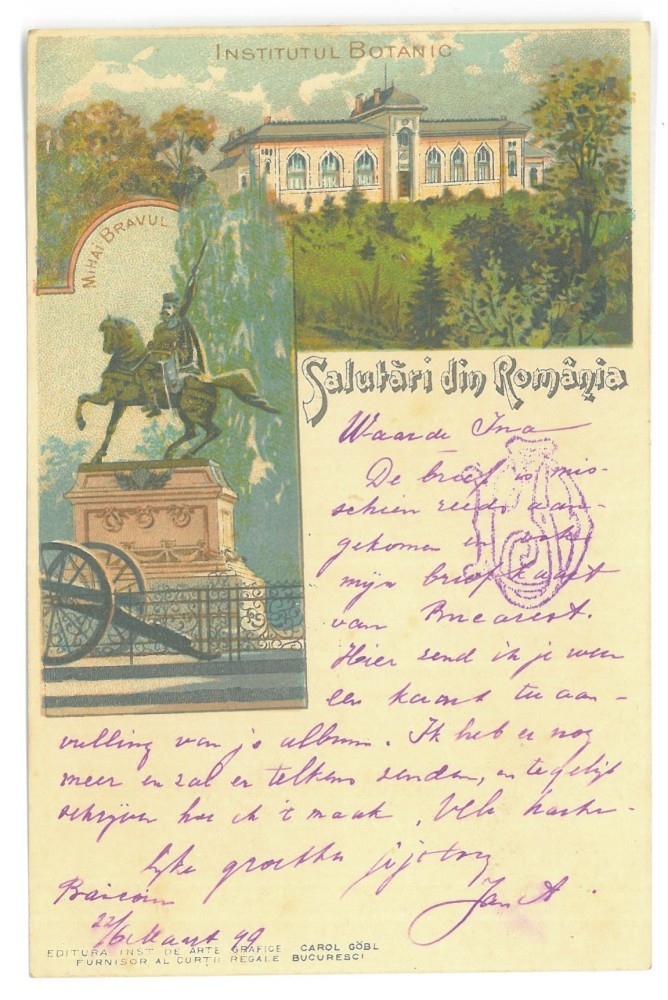 INSTITUTUL BOTANIC
MIHAI-BRAVUL
Salutări din România
Waarde Ina
De brief is mis-
schien reeds aan-
gekomen en ook
mijn briefkaart
van Bucarest.
Hier zend ik je weer
een kaart ter aan-
vulling van je album. Ik heb er nog
meer en zal er telkens zenden, en tegelijk
schrijven hoe ik 't maak. Vele harte-
lijke groeten
Jan A.
22/6 Maart 99
EDITURA INST. DE ARTE GRAFICE CAROL GÖBL
FURNISOR AL CURȚII REGALE BUCURESCI